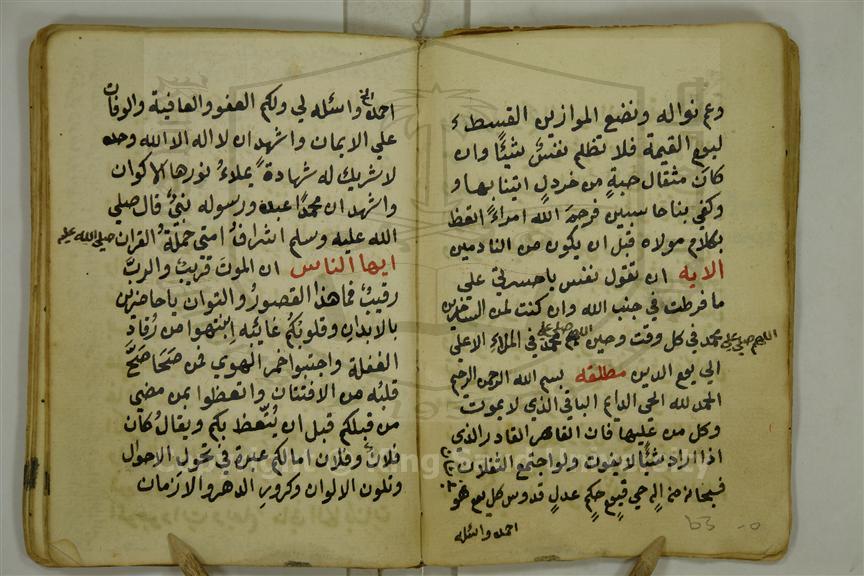 وعم نواله ونضع الموازين القسط
ليوم القيمة فلا تظلم نفسٌ شيئًا وان
كان مثقال حبةٍ من خردلٍ اتينا بها و
وكفي بنا حاسبين فرحم الله امراءً اتعظ
بكلام مولاه قبل ان يكون من النادمين
الايه ان تقول نفس ياحسرتي علي
ما فرطت في جنب الله وان كنت لمن الساخرين
اللهم صلي علي محمد في كل وقت وحين اللهم صلي علي محمد في الملاء الاعلي
الي يوم الدين مطلقه بسم الله الرحمن الرحيم
الحمد لله الحي الدايم الباقي الذي لا يموت
وكل من عليها فان القاهر القادر الذي
اذا اراد شيئًا لا يفوت ولو اجتمع الثقلان
فسبحانه من الهٍ حيٍ قيومٍ حكمٍ عدلٍ قدوس كل يوم هو
احمده واسئله
احمده واسئله لي ولكم العفو والعافية والوفات
علي الايمان واشهد ان لا اله الا الله وحده
لا شريك له شهادةً يملاءُ نورها الاكوان
واشهد ان محمدًا عبده ورسوله نبيٌ قال صلي
الله عليه وسلم اشرافُ امتي حملةُ القران صلي الله عليه
ايها الناس ان الموتَ قريبٌ والربَّ
رقيبٌ فما هذا القصورُ والتوان ياحاضرين
بالابدانِ وقلوبُكم غايبه اِنتبهوا من رُقاد
الغفلة واجتنبوا خمر الهوي فمن صَحَا صَحَّ
قلبُه من الافتتان واتعظوا بمن مضي
من قبلكم قبل ان يُتّعظ بكم ويقالُ كان
فلانٌ وفلان امالكم عبرة في تحول الاحوال
وتلون الالوان وكرور الدهر والازمان